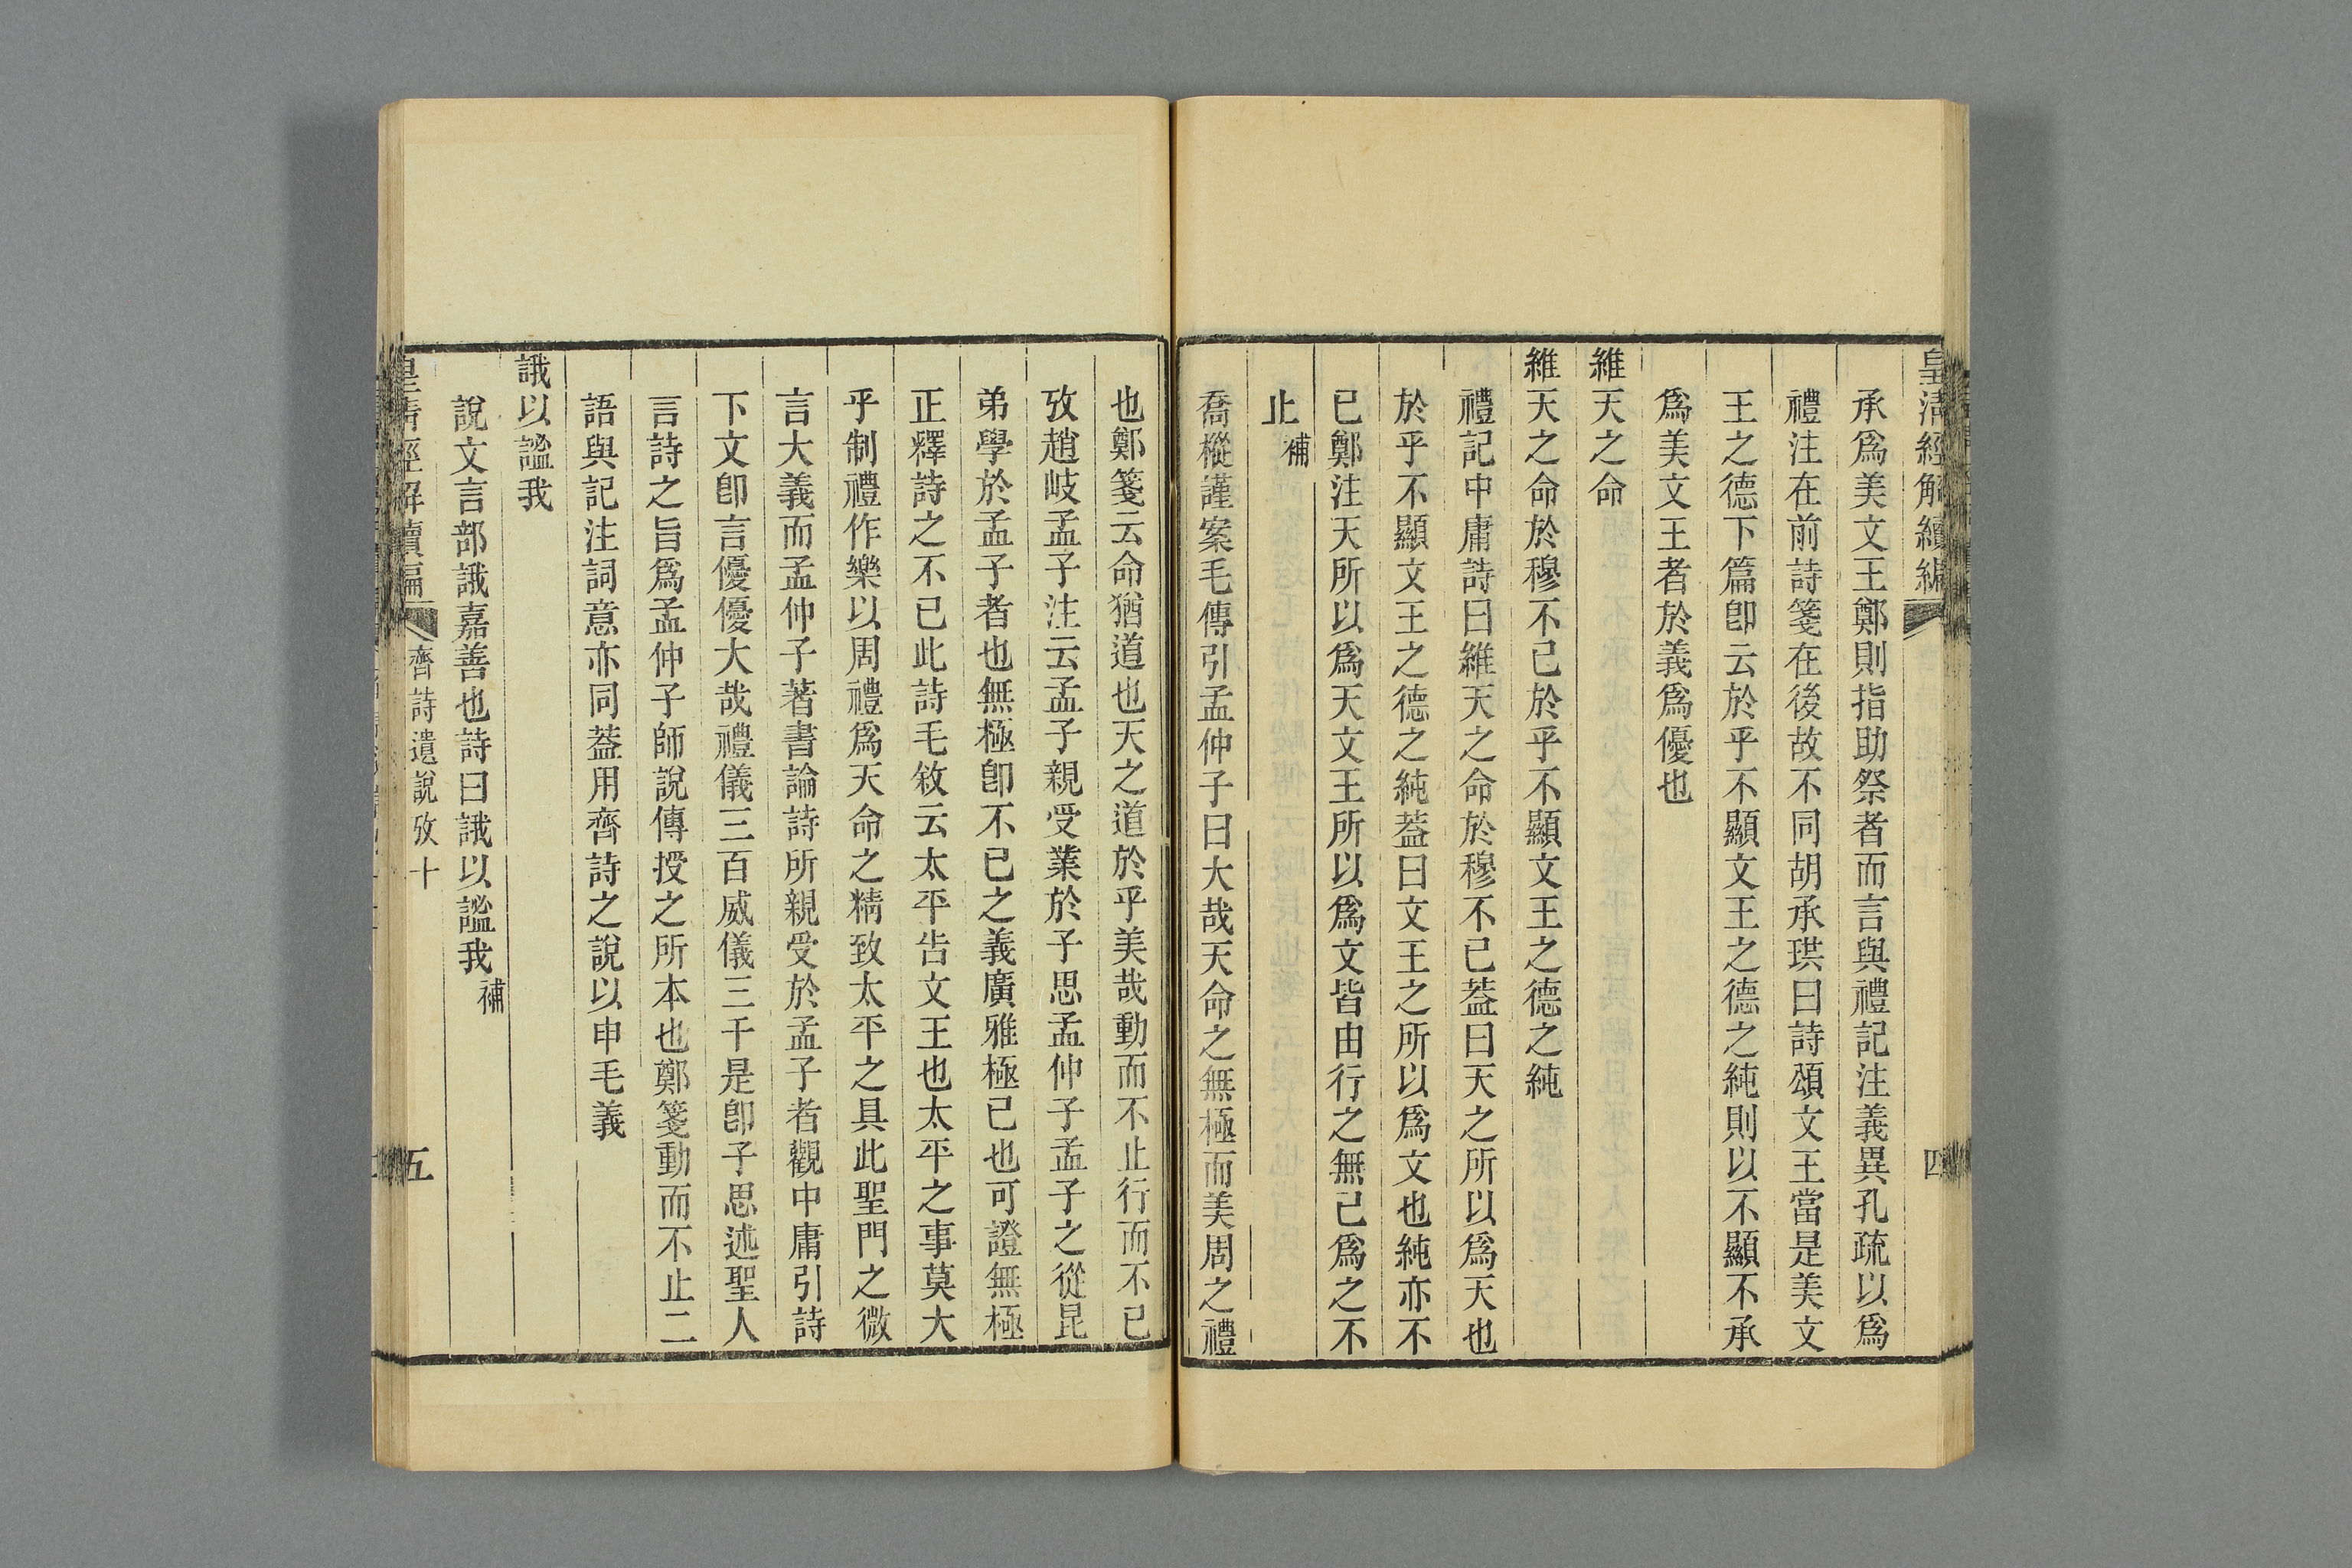 皇清經解續編
四
承爲美文王鄭則指助祭者而言與禮記注義異孔疏以爲
禮注在前詩箋在後故不同胡承珙曰詩頌文王當是美文
王之德下篇卽云於乎不顯文王之德之純則以不顯不承
爲美文王者於義爲優也
維天之命
維天之命於穆不已於乎不顯文王之德之純
禮記中庸詩曰維天之命於穆不已葢曰天之所以爲天也
於乎不顯文王之德之純葢曰文王之所以爲文也純亦不
已鄭注天所以爲天文王所以爲文皆由行之無已爲之不
止補
喬樅謹案毛傳引孟仲子曰大哉天命之無極而美周之禮
也鄭箋云命猶道也天之道於乎美哉動而不止行而不已
攷趙岐孟子注云孟子親受業於子思孟仲子孟子之從昆
弟學於孟子者也無極卽不已之義廣雅極已也可證無極
正釋詩之不已此詩毛敘云太平告文王也太平之事莫大
乎制禮作樂以周禮爲天命之精致太平之具此聖門之微
言大義而孟仲子著書論詩所親受於孟子者觀中庸引詩
下文卽言優優大哉禮儀三百威儀三千是卽子思述聖人
言詩之旨爲孟仲子師說傳授之所本也鄭箋動而不止二
語與記注詞意亦同葢用齊詩之說以申毛義
誐以謐我
說文言部誐嘉善也詩曰誐以謐我補
皇清經解續編
齊詩遺說攷十
五